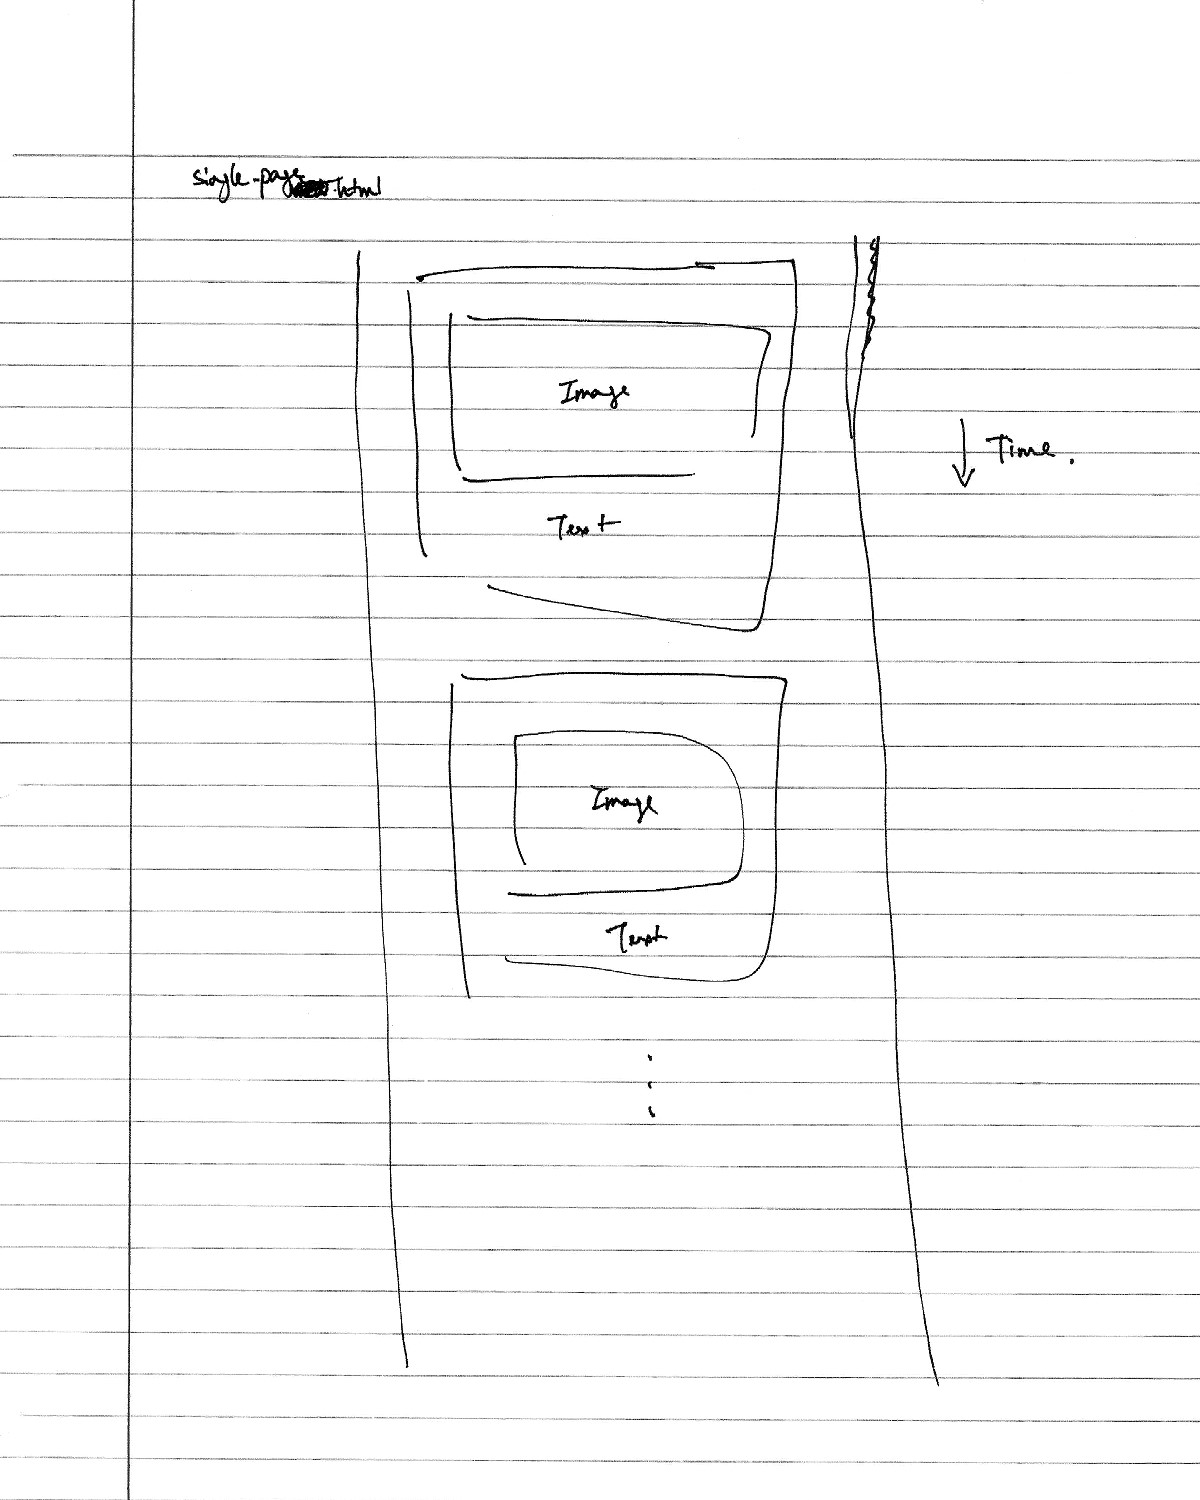 single-page.html
Image
Time.
Text
Image
Text